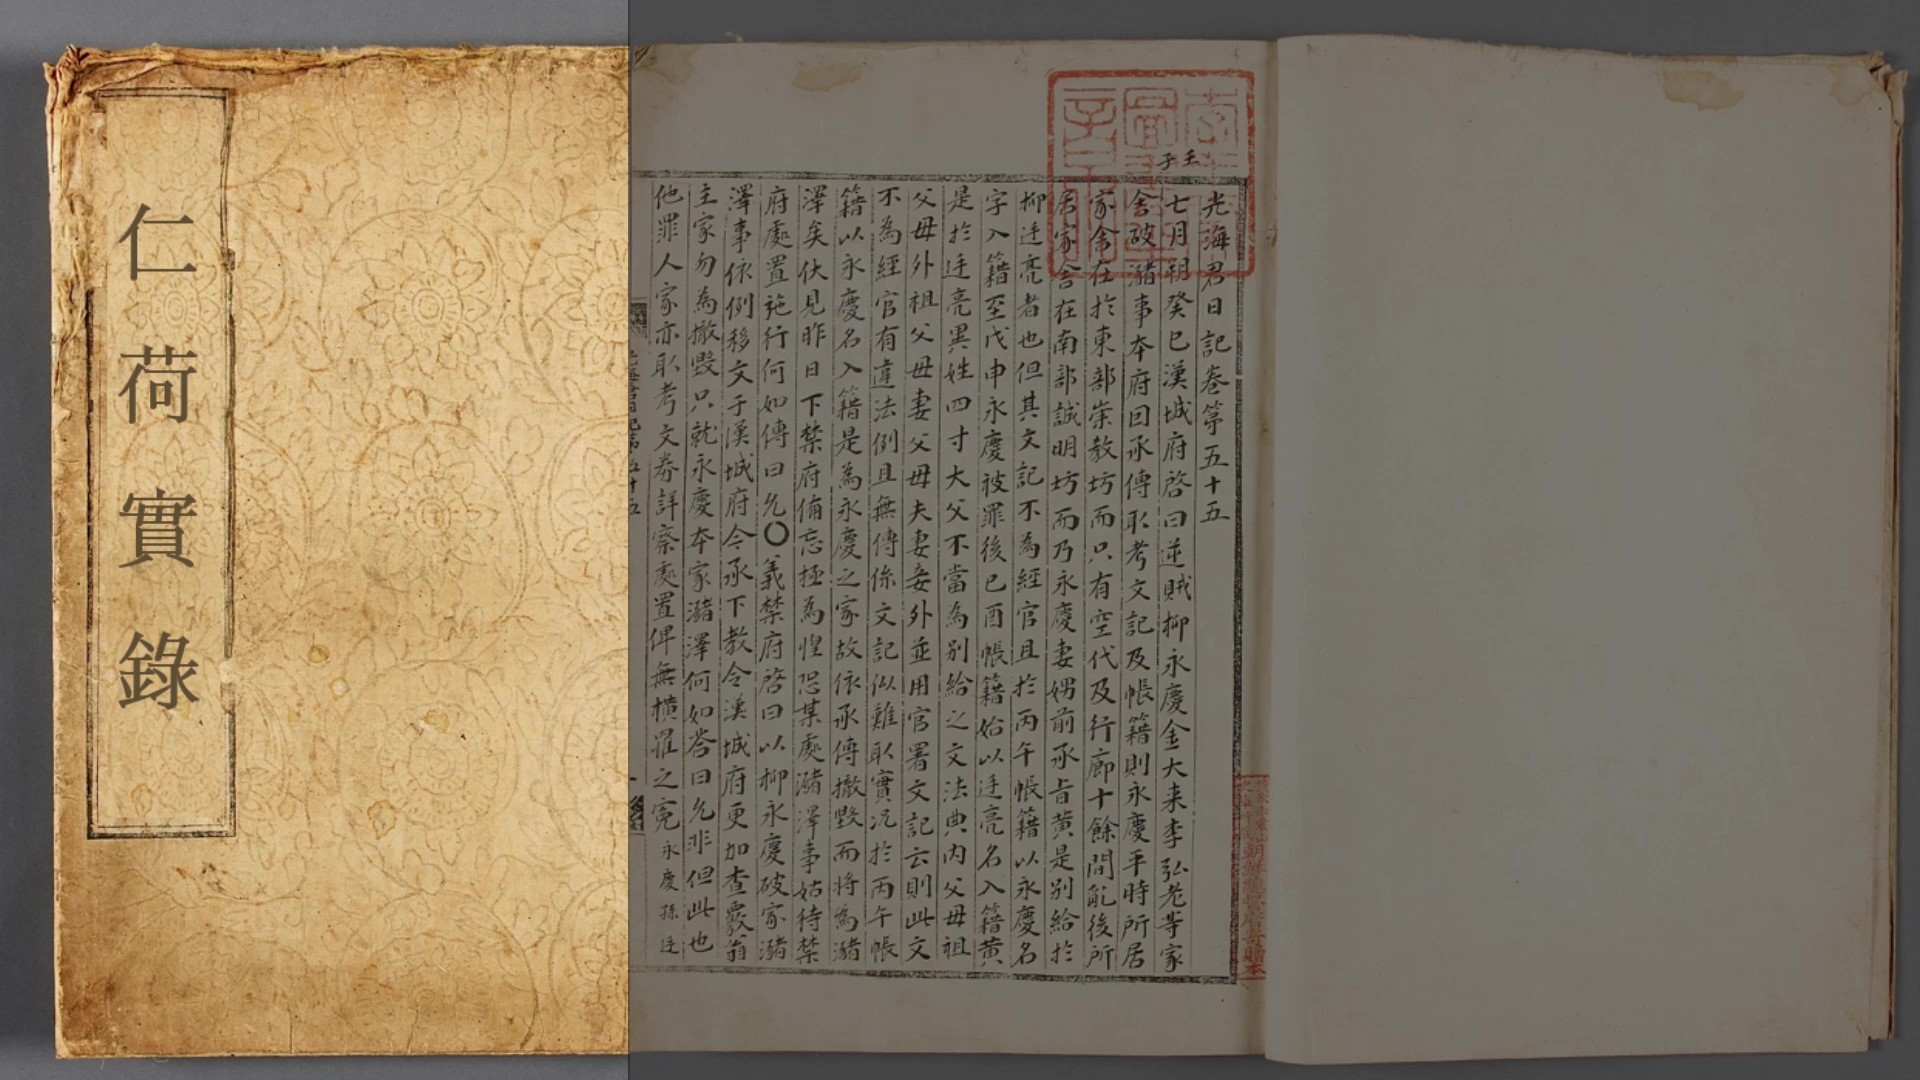 仁荷實錄
壬子
光海君日記卷第五十五
七月朔癸巳漢城府啓曰逆賊柳永慶金大来李弘老等家
舍破瀦事本府回承傳取考文記及帳籍則永慶平時所居
家舍在於東部崇教坊而只有空代及行廊十餘間亂後所
居家舍在南部誠明坊而乃永慶妻娚前承旨黃是別給於
柳廷亮者也但其文記不為經官且於丙午帳籍以永慶名
字入籍至戊申永慶被罪後己酉帳籍始以廷亮名入籍黃
是於廷亮異姓四寸大父不當為別給之文法典內父母祖
父母外祖父母妻父母夫妻妾外並用官署文記云則此文
不為經官有違法例且無傳係文記似難取實况於丙午帳
籍以永慶名入籍是為永慶之家故依承傳撤毀而將為瀦
澤矣伏見昨日下禁府備忘極為惶恐某處瀦澤事姑待禁
府處置施行何如傳曰允〇義禁府啓曰以柳永慶破家瀦
澤事依例移文于漢城府今承下教令漢城府更加查覈翁
主家勿為撤毀只就永慶本家瀦澤何如答曰允非但此也
他罪人家亦取考文券詳察處置俾無橫罹之寃永慶孫廷